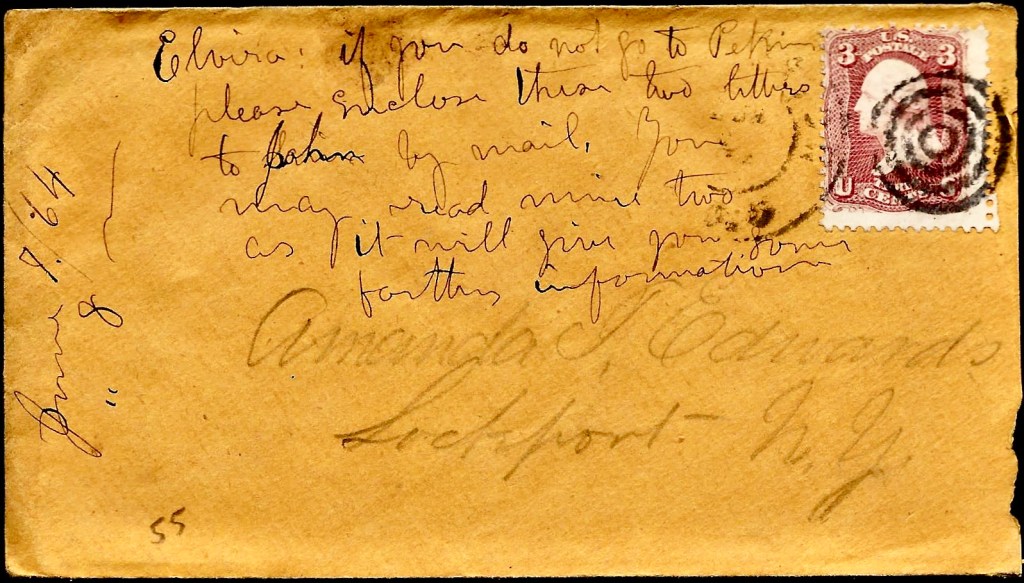 Elvira: if you do not go to Pekin
please enclose these two letters
to John by mail. You
may read mine two
as it will give you some
farther information
June 7/64
" 8
Amanda Edwards
Lockport N.Y.
55
3 U.S. 3
POSTAGE
U
CEN